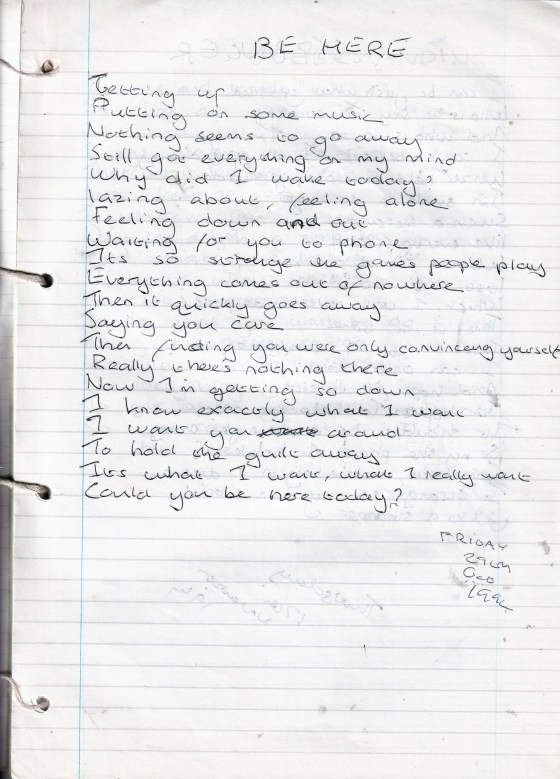 BE HERE
Getting up
Putting on some music
Nothing seems to go away
Still got everything on my mind
Why did I wake today?
lazing about, feeling alone
Feeling down and out
Waiting for you to phone
Its so strange the games people play
Everything comes out of nowhere
Then it quickly goes away
Saying you care
Then finding you were only convincing yourself
Really theres nothing there
Now I'm getting so down
I know exactly what I want
I want you around
To hold the guilt away
Its what I want, what I really want
Could you be here today?
FRIDAY
29th